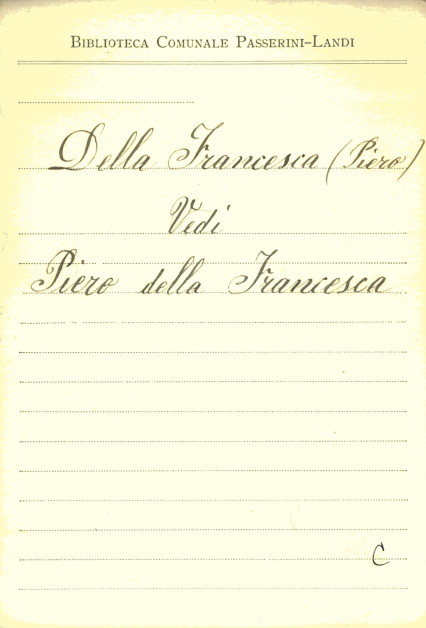 Biblioteca Comunale Passerini-Landi
Della Francesca (Piero)
Vedi
Piero della Francesca
C